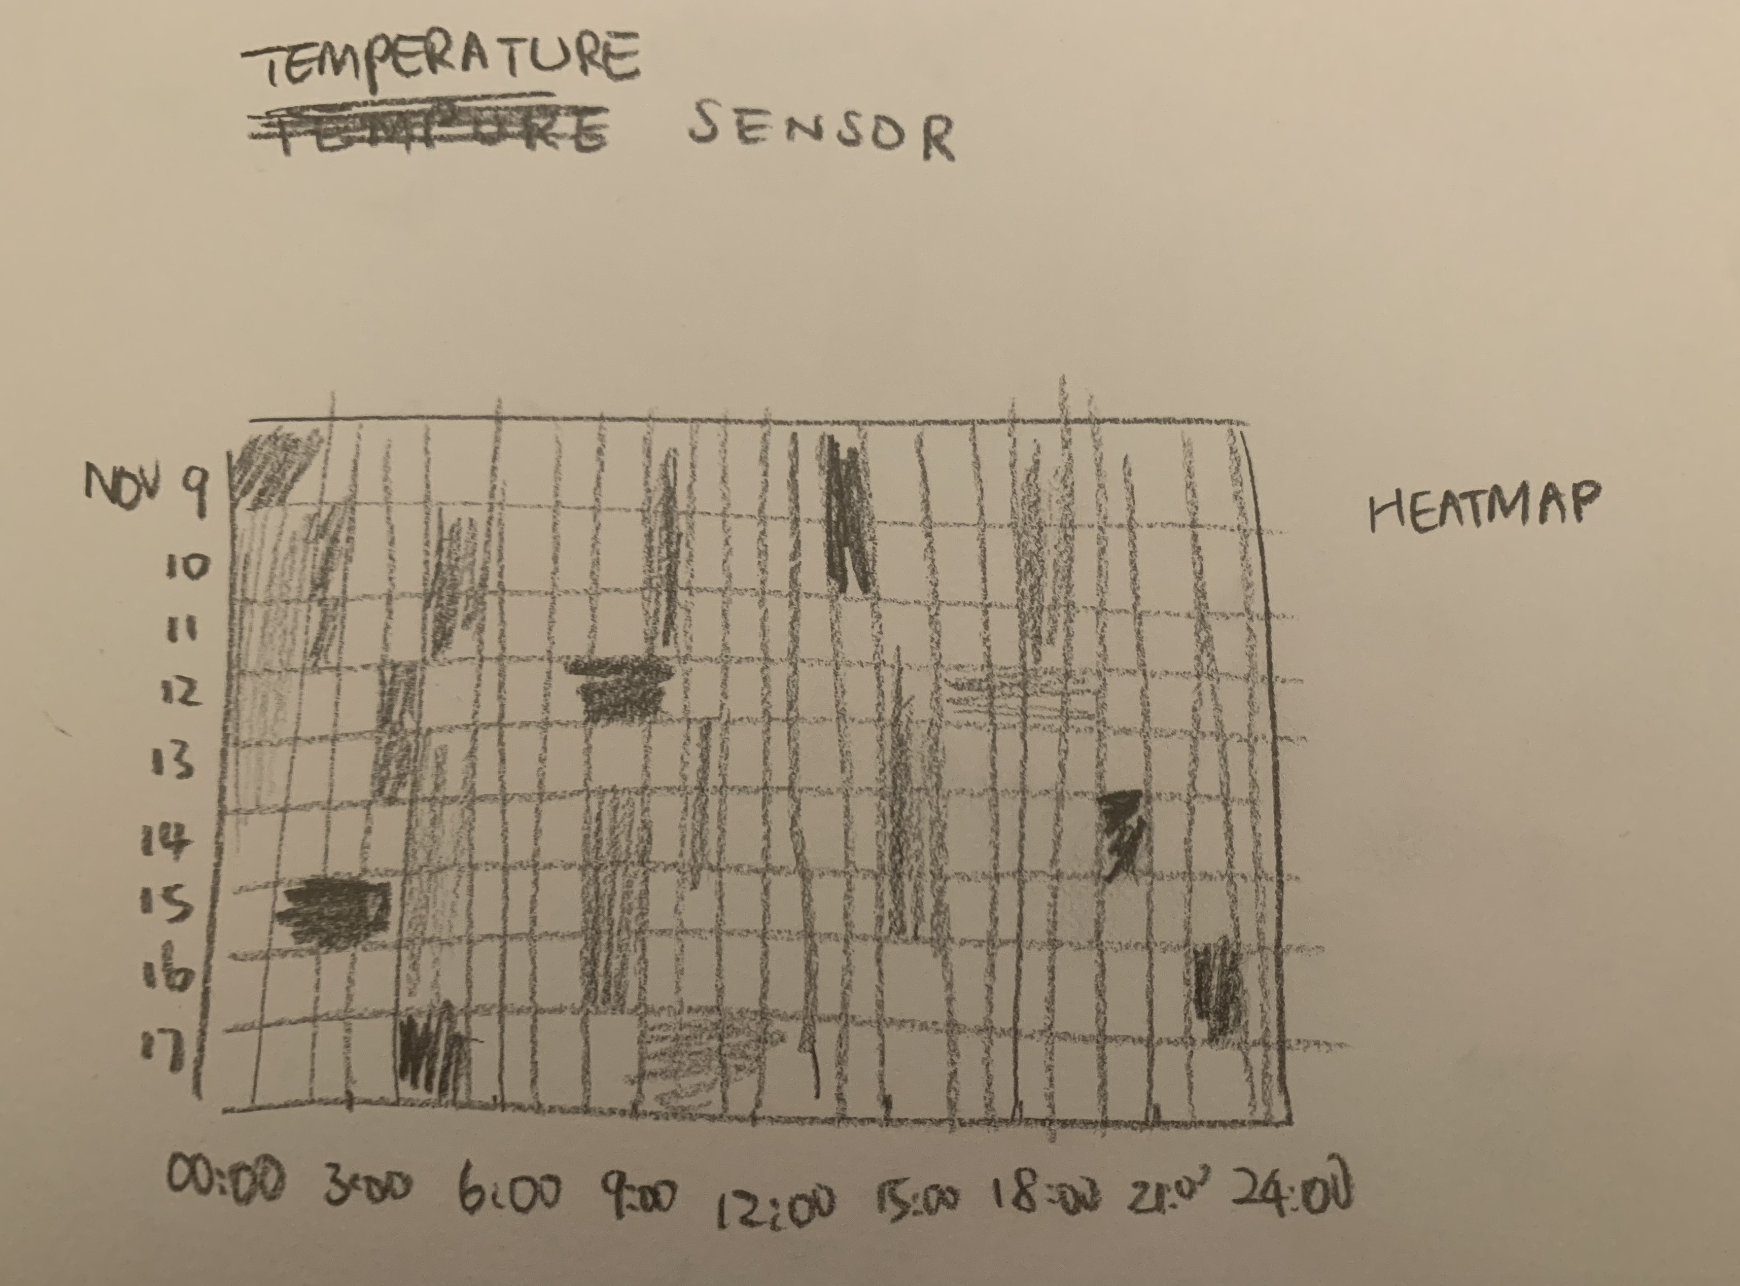 TEMPERATURE
TEMPURE SENSOR
HEATMAP
NOV 9
10
11
12
13
14
15
16
17
00:00 3:00 6:00 9:00 12:00 15:00 18:00 21:00 24:00